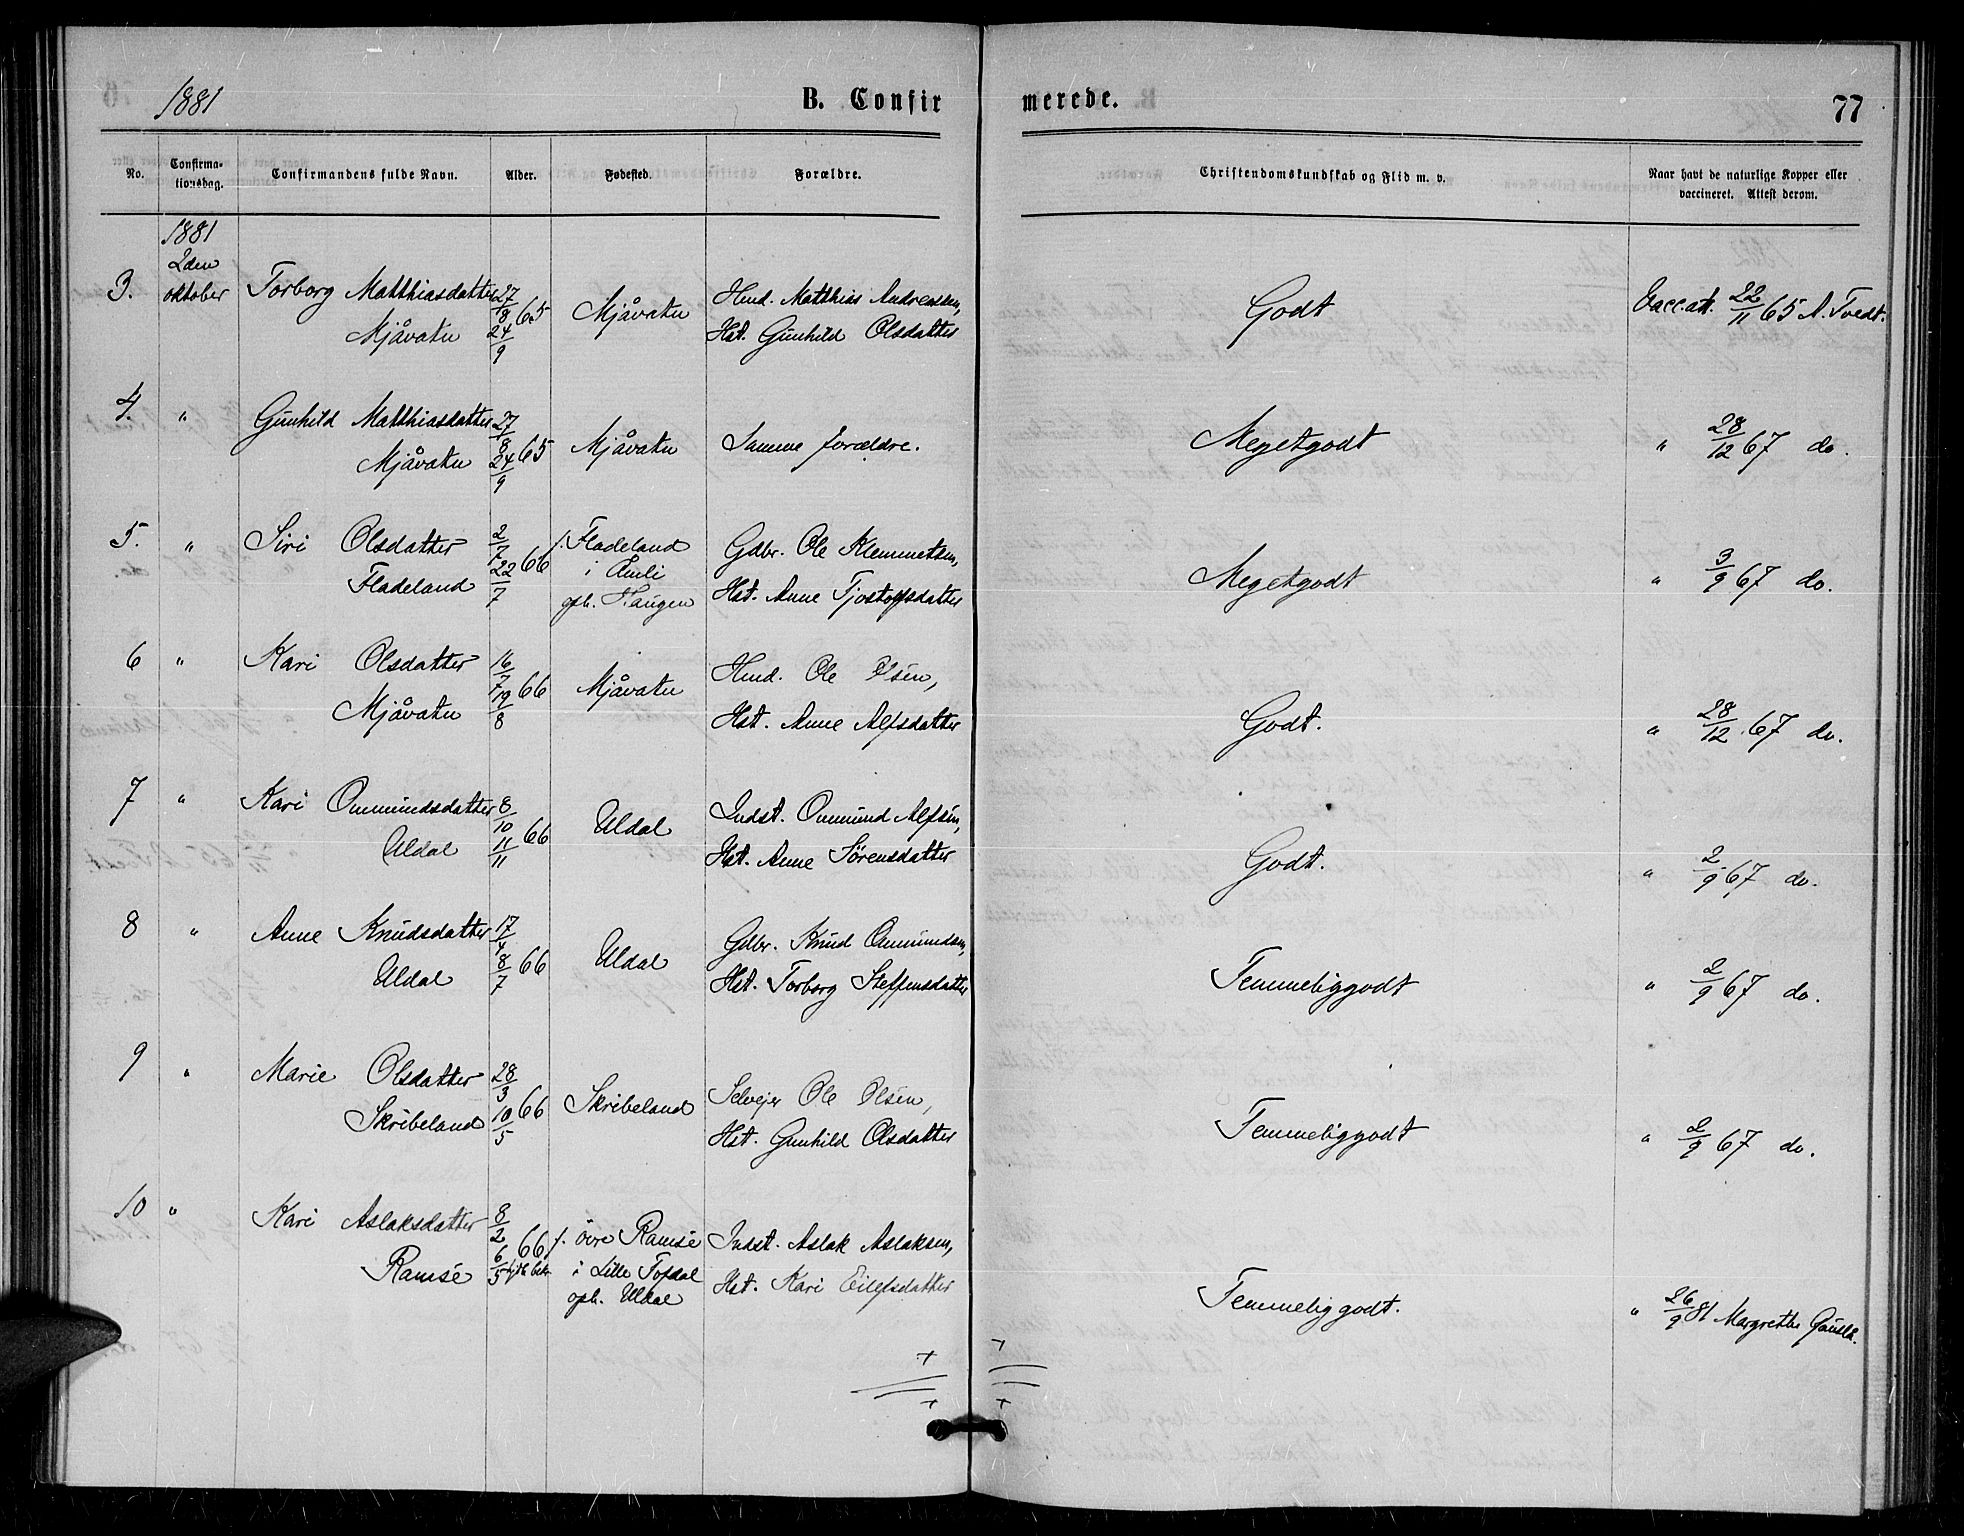 1881
B. Confirmerede.
77
No.
Confirma-
tionsdag.
Confirmandens fulde Navn.
Alder.
Fødested.
Forældre.
Christendomskundskab og Flid m. v.
Naar havt de naturlige Kopper eller
vaccineret. Attest derom.
1881
2den
oktober
3. Torborg Matthiasdatter 27/8 65 24/9 Mjåvatn Hmd. Matthias Andreassen, Godt Vacc. att. 22/11 65 A. Tvedt.
Mjåvatn Hst. Gunhild Olsdatter
4. " Gunhild Matthiasdatter 27/8 65 24/9 Mjåvatn Samme forældre. Megetgodt " 28/12 67 do.
Mjåvatn
5. " Siri Olsdatter 2/7 66 22/7 f. Fladeland Gdbr. Ole Klemmetsen, Megetgodt " 3/9 67 do.
Fladeland i Åmli
oph. Haugen Hst. Anne Tjostolfsdatter
6 " Kari Olsdatter 16/7 66 19/8 Mjåvatn Hmd. Ole Olsen, Godt. " 28/12 67 do.
Mjåvatn Hst. Anne Alfsdatter
7 " Kari Ommundsdatter 8/10 66 11/11 Uldal Indst. Ommund Alfsen, Godt. " 2/9 67 do.
Uldal Hst. Anne Sørensdatter
8 " Anne Knudsdatter 17/4 66 8/7 Uldal Gdbr. Knud Ommundsen, Temmeliggodt " 2/9 67 do.
Uldal Hst. Torborg Steffensdatter
9 " Marie Olsdatter 28/3 66 10/5 Skribeland Selvejer Ole Olsen, Temmeliggodt " 2/9 67 do.
Skribeland Hst. Gunhild Olsdatter
10 " Kari Aslaksdatter 8/2 66 6/5 f. övre Ramse Indst. Aslak Aslaksen, Temmeliggodt. " 26/9 81 Margrethe
Ramse i Lille Tofdal Hst. Kari Eilefsdatter
oph. Uldal